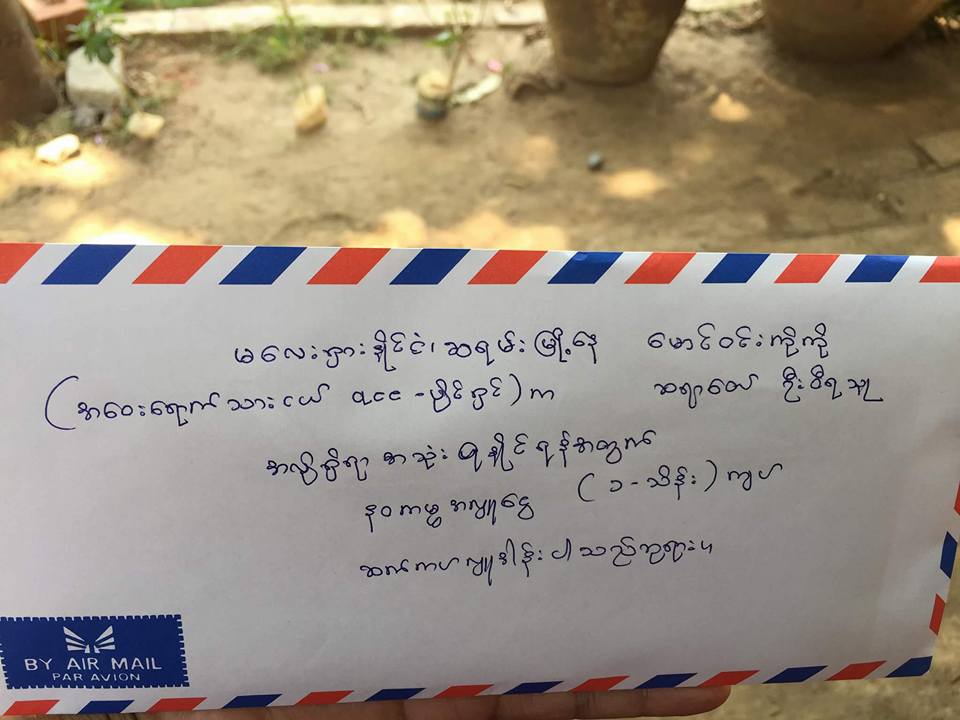 မလေးရှားနိုင်ငံ၊ ဆရမ်းမြို့နေ မောင်ဝင်းကိုကို
(အဝေးရောက်သားငယ် ၎င်း-ပိုင်ရှင်) က ဆရာတော် ဦးဝီရသူ
အလိုရှိရာ အသုံးပြုနိုင်ရန်အတွက်
နဝကမ္မ အလှူငွေ (၁-သိန်း) ကျပ်
ဆက်ကပ်လှူဒါန်းပါသည်ဘုရား။
BY AIR MAIL
PAR AVION